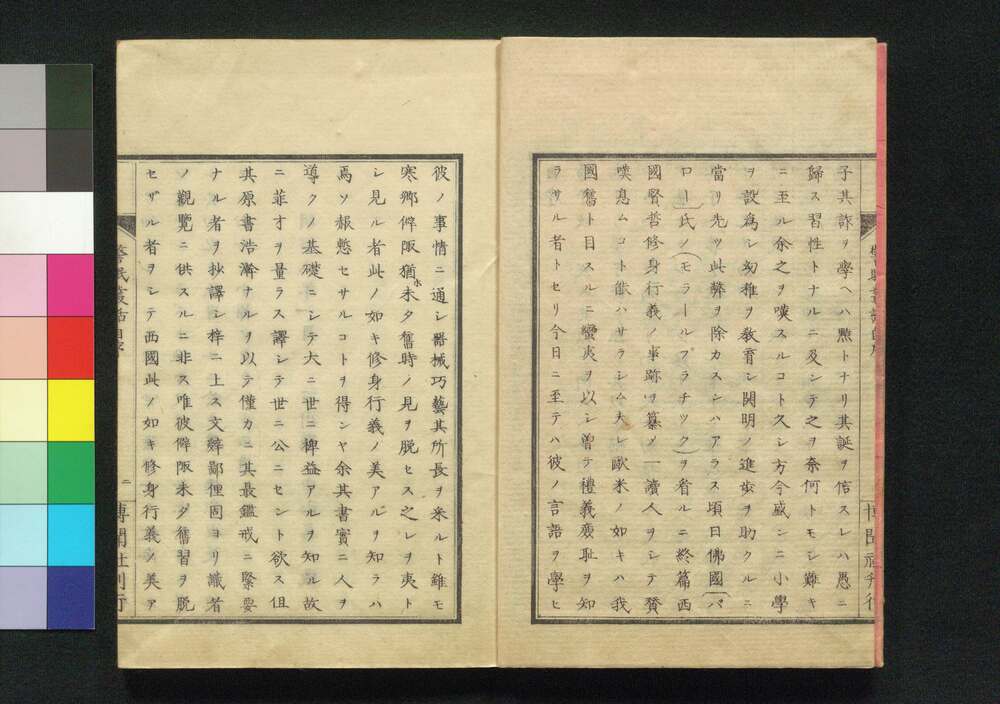 子其詐ヲ學ヘハ黠トナリ其誕ヲ信スレハ愚ニ
歸ス習性トナルニ及シテ之ヲ奈何トモシ難キ
ニ至ル余之ヲ嘆スルコト久シ方今盛ンニ小學
ヲ設爲シ幼稚ヲ敎育シ開明ノ進歩ヲ助クルニ
當リ先ツ此弊ヲ除カスンハアラス頃日佛國(バ
ロー)氏ノ(モラールプラチツク)ヲ看ルニ終篇西
國賢哲修身行義ノ事跡ヲ纂メ讀人ヲシテ賛
嘆息ムコト能ハサラシム夫レ歐米ノ如キハ我
國舊ト目スルニ蠻夷ヲ以シ曽テ禮義廉耻ヲ知
ラサル者トセリ今日ニ至テハ彼ノ言語ヲ學ヒ
博聞社刊行
彼ノ事情ニ通シ器械巧藝其所長ヲ采ルト雖モ
寒鄕僻陬猶ホ未タ舊時ノ見ヲ脱セス之レヲ夷ト
シ見ル者此ノ如キ修身行義ノ美アルヲ知ラハ
焉ソ赧愁セサルコトヲ得ンヤ余其書實ニ人ヲ
導クノ基礎ニシテ大ニ世ニ裨益アルヲ知ル故
ニ菲才ヲ量ラス譯シテ世ニ公ニセント欲ス但
其原書浩瀚ナルヲ以テ僅カニ其最鑑戒ニ緊要
ナル者ヲ抄譯シ梓ニ上ス文辭鄙俚固ヨリ識者
ノ觀覽ニ供スルニ非ス唯彼僻陬未タ舊習ヲ脱
セザル者ヲシテ西國此ノ如キ修身行義ノ美ア
二
博聞社刊行